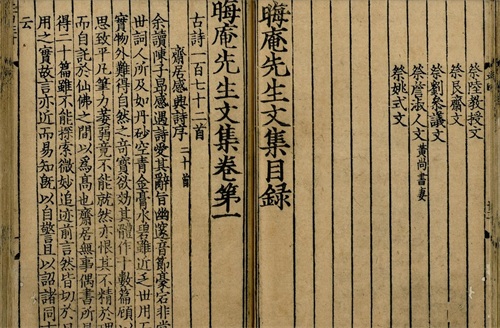 祭陸教授文
祭艮齋文
祭劉叅議文
祭詹淑人文 黃尚書妻
祭姚式文
晦庵先生文集目録
晦庵先生文集卷第一
古詩一百七十二首
齋居感興詩序 二十首
余讀陳子昂感遇詩愛其辭旨幽邃音節豪宕非當
世詞人所及如丹砂空青金膏水碧雖近乏世用
實物外難得自然之奇寶欲効其體作十數篇顧以
思致平凡筆力萎弱竟不能就然亦恨其不精於理
而自託於仙佛之間以爲高也齋居無事偶書所
得二十篇雖不能探索微妙追迹前言然皆切於日
用之實故言亦近而易知旣以自警且以詒諸同
云